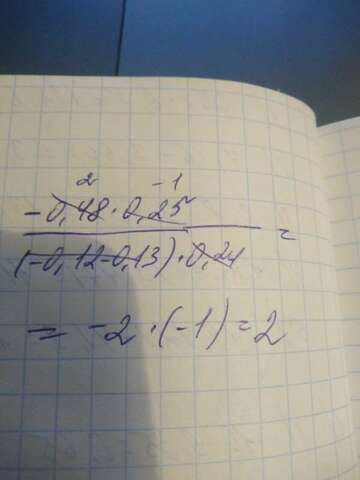 2 -1
-0,48·0,25
(-0,12-0,13)·0,24 =
= -2·(-1)=2